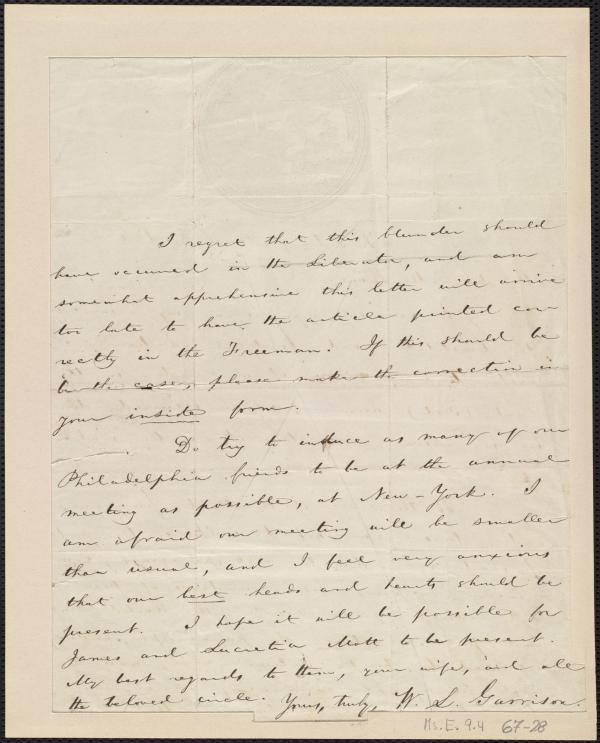 I regret that this blunder should
have occurred in the Liberator, and am
somewhat apprehensive this letter will arrive
too late to have the article printed cor-
rectly in the Freeman. If this should be
be the case, please make the correction in
your inside form.
Do try to induce as many of our
Philadelphia friends to be at the annual
meeting as possible, at New-York. I
am afraid our meeting will be smaller
than usual, and I feel very anxious
that our best heads and hearts should be
present. I hope it will be possible for
James and Lucretia Mott to be present.
My best regards to them, your wife, and all
the beloved circle. Yours, truly, W. L. Garrison.
Ms. E. 9.4 67-28